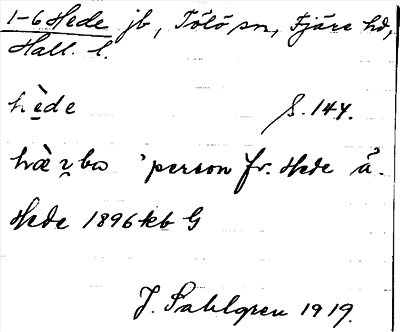 1-6 Hede jb, Tölö sn, Fjäre hd,
Hall. l.
hède S. 144.
hræ̀ṿbo 'person fr. Hede å.
Hede 1896 kb G
J. Sahlgren 1919.